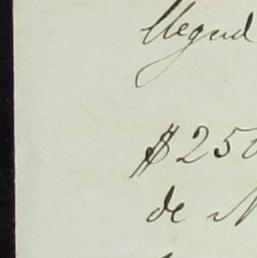 llegad
$250
de